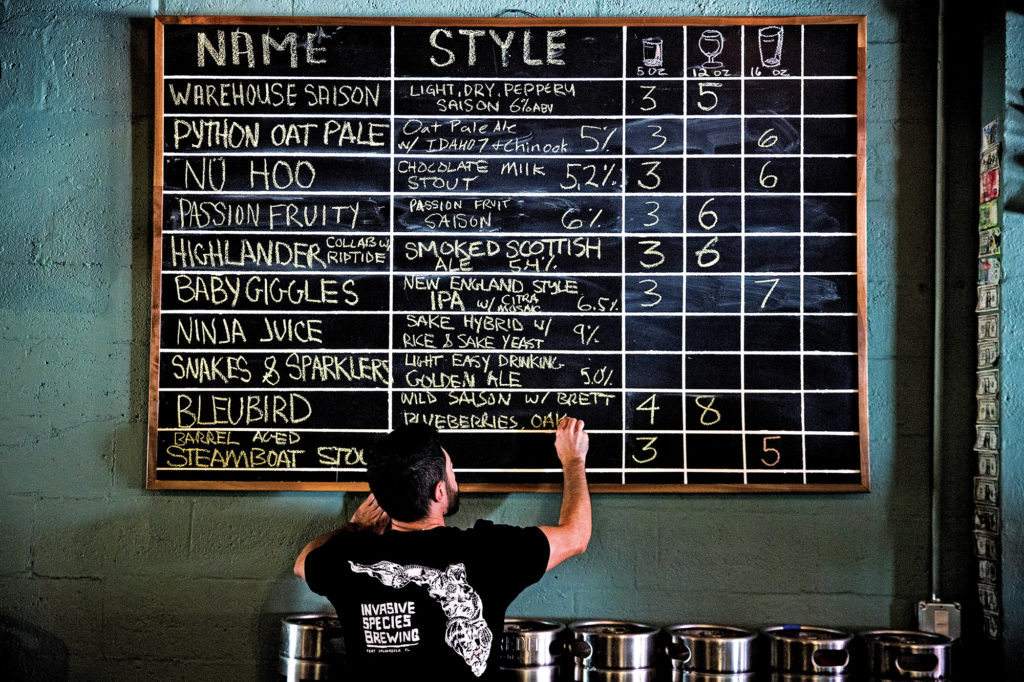 NAME STYLE 5 OZ 12 OZ 16 OZ
WAREHOUSE SAISON LIGHT, DRY, PEPPERY 3 5
SAISON 6% ABV
PYTHON OAT PALE Oat Pale Ale 5% 3 6
w/ IDAHO 7 + Chinook
NU HOO CHOCOLATE MILK 5.2% 3 6
STOUT
PASSION FRUITY PASSION FRUIT 3 6
SAISON 6%
HIGHLANDER COLLAB W/ SMOKED SCOTTISH 3 6
RIPTIDE ALE 5.4%
BABY GIGGLES NEW ENGLAND STYLE 3 7
IPA w/ CITRA 6.5%
MOSAIC
NINJA JUICE SAKE HYBRID W/ 9%
RICE & SAKE YEAST
SNAKES & SPARKLERS LIGHT EASY DRINKING
GOLDEN ALE 5.0%
BLEUBIRD WILD SAISON W/ BRETT 4 8
BLUEBERRIES, OAK
BARREL AGED 3 5
STEAMBOAT STOU
INVASIVE
SPECIES
BREWING
FORT LAUDERDALE, FL